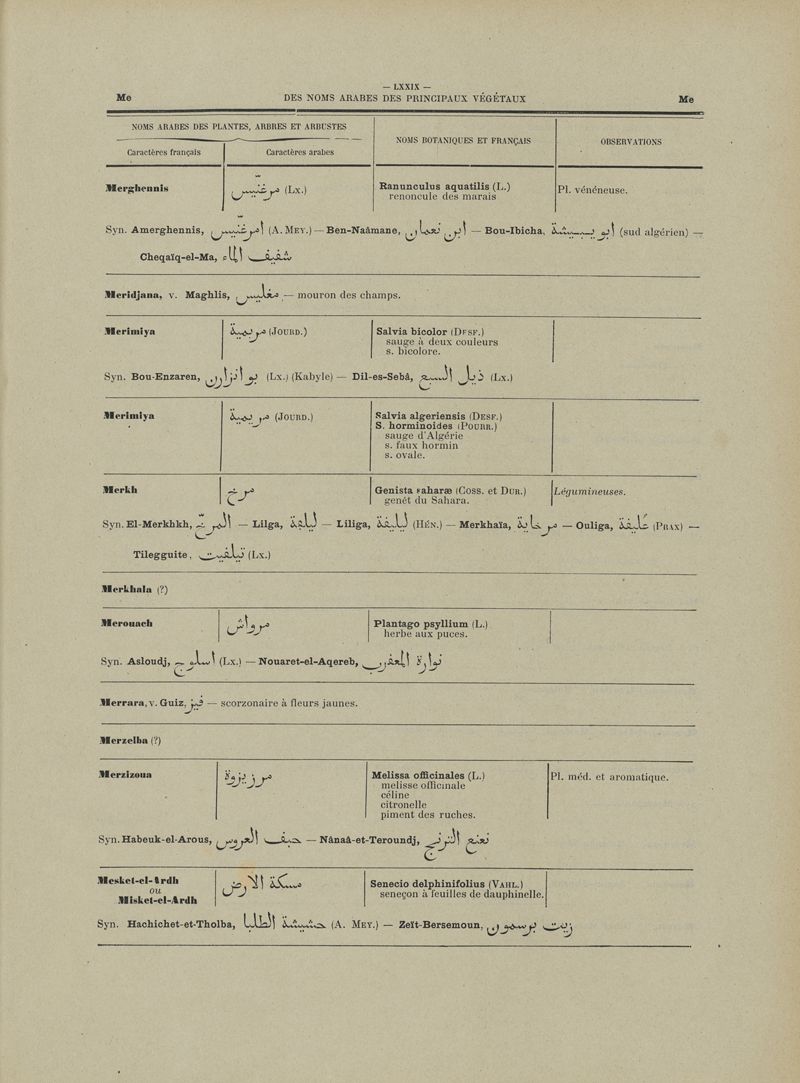 — LXXIX —
Me DES NOMS ARABES DES PRINCIPAUX VÉGÉTAUX Me
NOMS ARABES DES PLANTES, ARBRES ET ARBUSTES
NOMS BOTANIQUES ET FRANÇAIS
OBSERVATIONS
Caractères français
Caractères arabes
Merghennis مرغنيس (Lx.) Ranunculus aquatilis (L.) Pl. vénéneuse.
renoncule des marais
Syn. Amerghennis, امرغنيس (A. Mey.) — Ben-Naâmane, ابن نعمان — Bou-Ibicha, ابو يبيشة (sud algérien) —
Cheqaïq-el-Ma, شقيق الماء
Meridjana, v. Maghlis, مغليس — mouron des champs.
Merimiya مريمية (Jourd.) Salvia bicolor (Desf.)
sauge à deux couleurs
s. bicolore.
Syn. Bou-Enzaren, بو انزارن (Lx.) (Kabyle) — Dil-es-Sebâ, ذيل السبع (Lx.)
Merimiya مريمية (Jourd.) Salvia algeriensis (Desf.)
S. horminoides (Pourr.)
sauge d'Algérie
s. faux hormin
s. ovale.
Merkh مرخ Genista saharæ (Coss. et Dur.) Légumineuses.
genêt du Sahara.
Syn. El-Merkhkh, المرخ — Lilga, ليلقة — Liliga, ليليقة (Hén.) — Merkhaïa, مرخاية — Ouliga, (Prax) —
Tilegguite, تيلقيت (Lx.)
Merkhala (?)
Merouach مرواش Plantago psyllium (L.)
herbe aux puces.
Syn. Asloudj, اسلوج (Lx.) — Nouaret-el-Aqereb, نوارة العقرب
Merrara, v. Guiz, قيز — scorzonaire à fleurs jaunes.
Merzelba (?)
Merzizoua مرزيزوة Melissa officinales (L.) Pl. méd. et aromatique.
melisse officinale
céline
citronelle
piment des ruches.
Syn. Habeuk-el-Arous, حبق العروس — Nânaâ-et-Teroundj, نعنع الترنج
Mesket-el-Ardh مسكة الارض Senecio delphinifolius (Vahl.)
ou seneçon à feuilles de dauphinelle.
Misket-el-Ardh
Syn. Hachichet-et-Tholba, حشيشة الطلبا (A. Mey.) — Zeït-Bersemoun, زيت برسمون